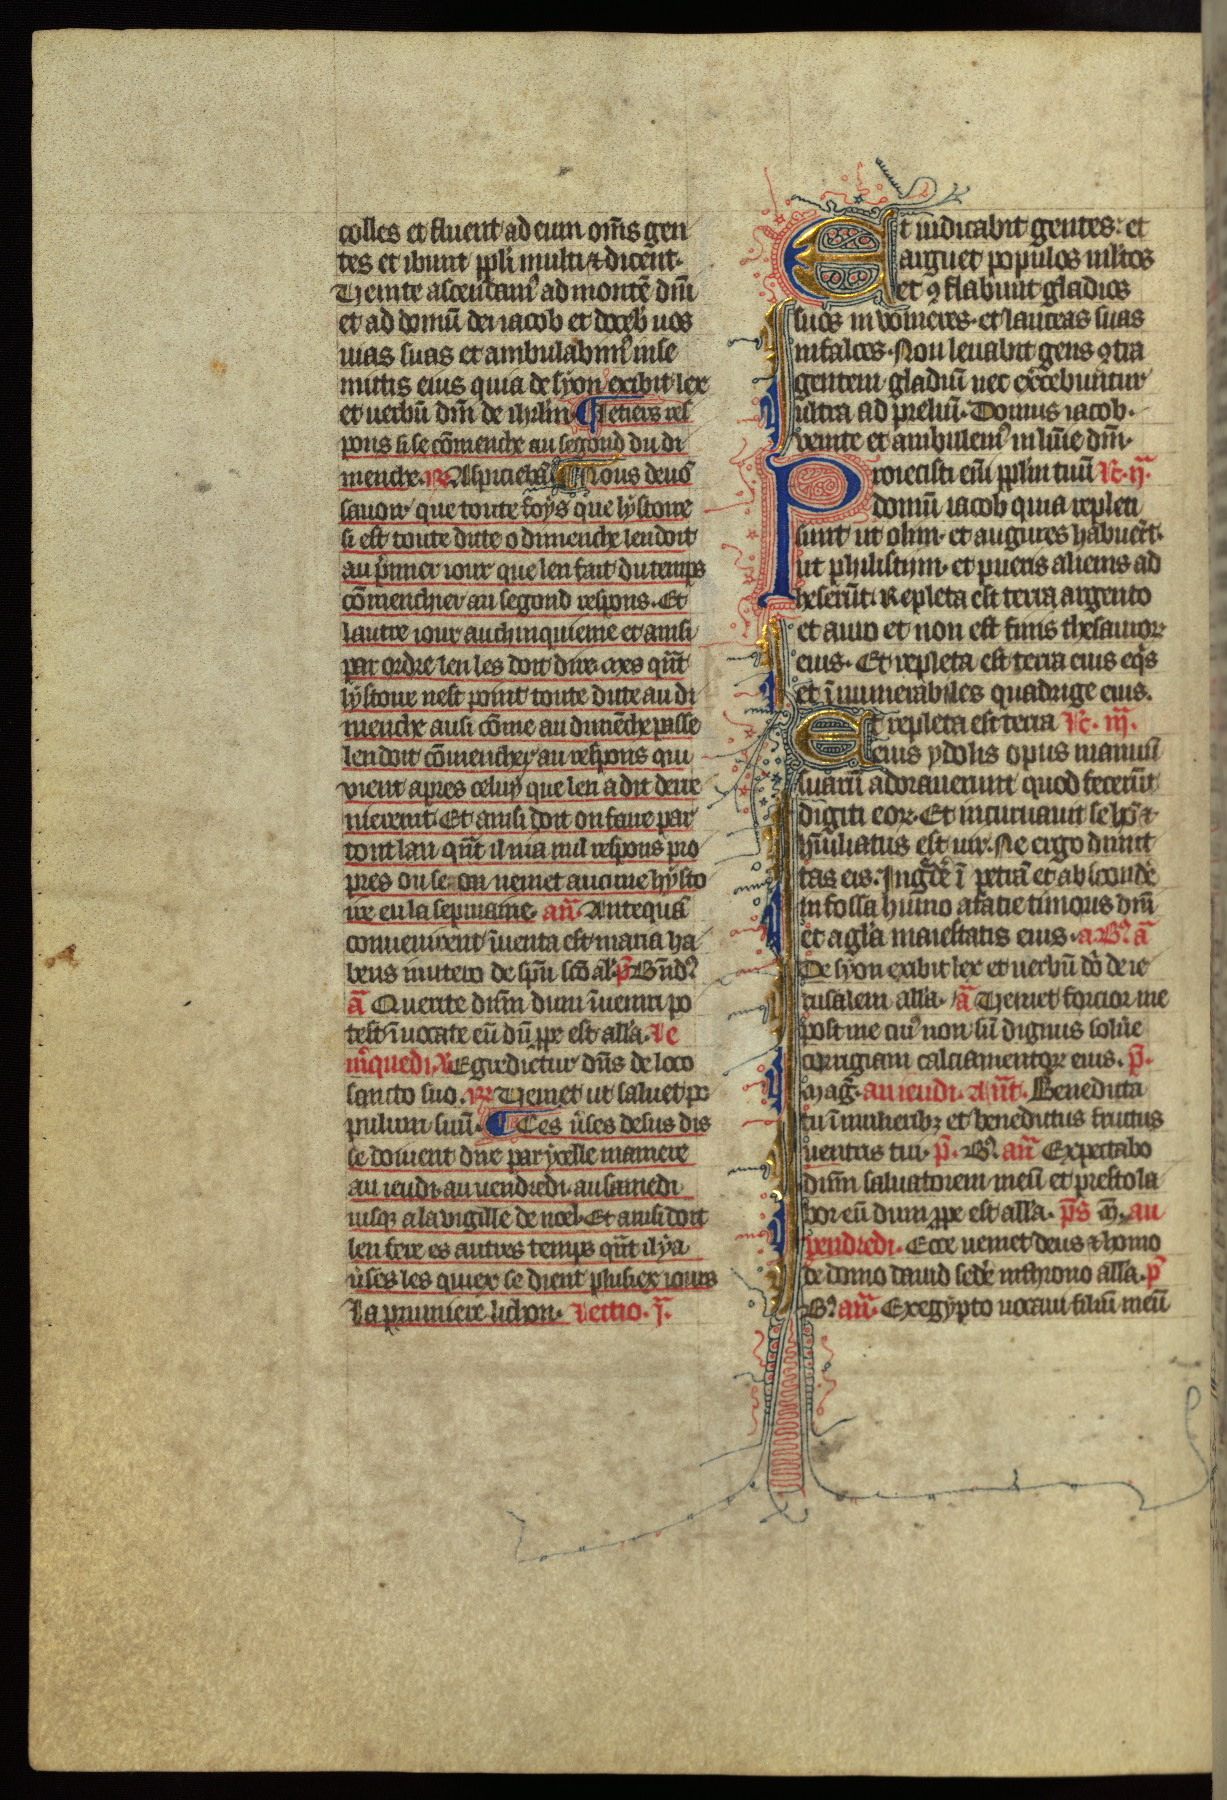 colles et fluent ad eum om̄s gen
tes et ibunt ppl̄i multi ⁊ dicent.
Uenite ascendam᷒ ad montē dn̄i
et ad domū dei iacob et doceb᷒ uos
uias suas et ambulabim᷒ in se
mitis eius quia de syon exibit lex
et uerbū dn̄i de ihrlm̄. Ce tiers res
pons si se cōmenche au segond du di
menche. ℟ Aspiciebā. Nous deuōs
sauoir que toute foys que lystoire
si est toute dite o dimenche len doit
au p̄mier iour que len fait du temps
cōmenchier au segond respons. Et
lautre iour au chinquieme et ainsi
par ordre len les doit dire. mes qn̄t
lystoire nest point toute dite au di
menche ausi cōme au dimēche passe
len doit cōmencher au respons qui
vient apres celuy que len a dit derre
nierement. Et ainsi doit on faire par
tout lan qn̄t il nia nul respons pro
pres ou se on ne met aucune hysto
ire en la sepmaine. an̄. Antequā
conuenirent īuenta est maria ha
bens in utero de sp̄u sc̄o al̄l. p̄. B̄nd᷒
ā Querite dn̄m dum īueniri po
test īuocate eū dū ꝓpe est alla. Le
m̄quedi. ℣ Egredietur dn̄s de loco
sancto suo. ℟ Ueniet ut saluet po
pulum suū. Ces u̓ses desus dis
se doiuent dire par ycelle maniere
au ieudi. au uendredi. au samedi
iusq̄ a la vigille de noel. Et ainsi doit
len fere es autres temps qn̄t il y a
u̓ses les quiex se dient plusiex iours
La prumiere lichon. Lectio. j̄.
Et iudicabit gentes: et
arguet populos mltos
et ꝯflabunt gladios
suos in vomeres. et lanceas suas
in falces. Non leuabit gens ꝯtra
gentem gladiū nec exercebuntur
ultra ad preliū. Domus iacob.
venite et ambulem᷒ in lūīe dn̄i.
Proiecisti eni pplm̄ tuū Lc̄. ij̄.
domū iacob quia repleti
sunt ut olim. et augures habuer̄t.
ut philistijm. et pueris alienis ad
heserūt. Repleta est terra argento
et auro et non est finis thesauroꝝ
eius. Et repleta est terra eius eq̄s
et īnumerabiles quadrige eius.
Et repleta est terra Lc̄. iij̄.
eius ydolis opus manuū
suarū adorauerunt quod fecerūt
digiti eoꝝ. Et incuruauit se hō ⁊
hūiliatus est uir. Ne ergo dimit
tas eis. Ing̓de ī petrā et absconde
in fossa humo a facie timoris dn̄i
et a gl̄a maiestatis eius. a. B᷒. ā
De syon exibit lex et uerbū dō de ie
rusalem alla. ā Ueniet forcior me
post me cui᷒ non sū dignus soluĕ
corrigiam calciamentoꝝ eius. p̄.
Mag̅. au ieudi. Ant̄. Benedicta
tu ī mulieribꝫ et benedictus fructus
uentris tui. p̄. B᷒. an̄ Expectabo
dn̄m saluatorem meū et prestola
bor eū dum ꝓpe est alla. p̄s M̄. au
vendredi. Ecce ueniet deus ⁊ homo
de domo dauid sedē in throno alla. p̄
B᷒. an̄. Ex egypto uocaui filiū meū